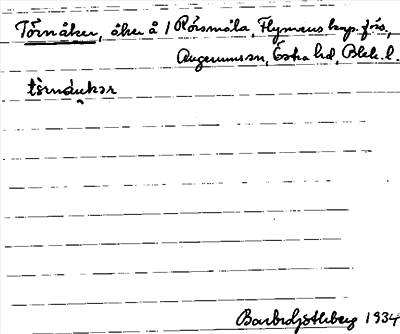 Törnåker, åker å 1 Rörsmåla, Flymens kap. förs.,
Augerums sn, Östra hd, Blek. l.
tö̀rnåukər
Barbro Ljothberg 1934